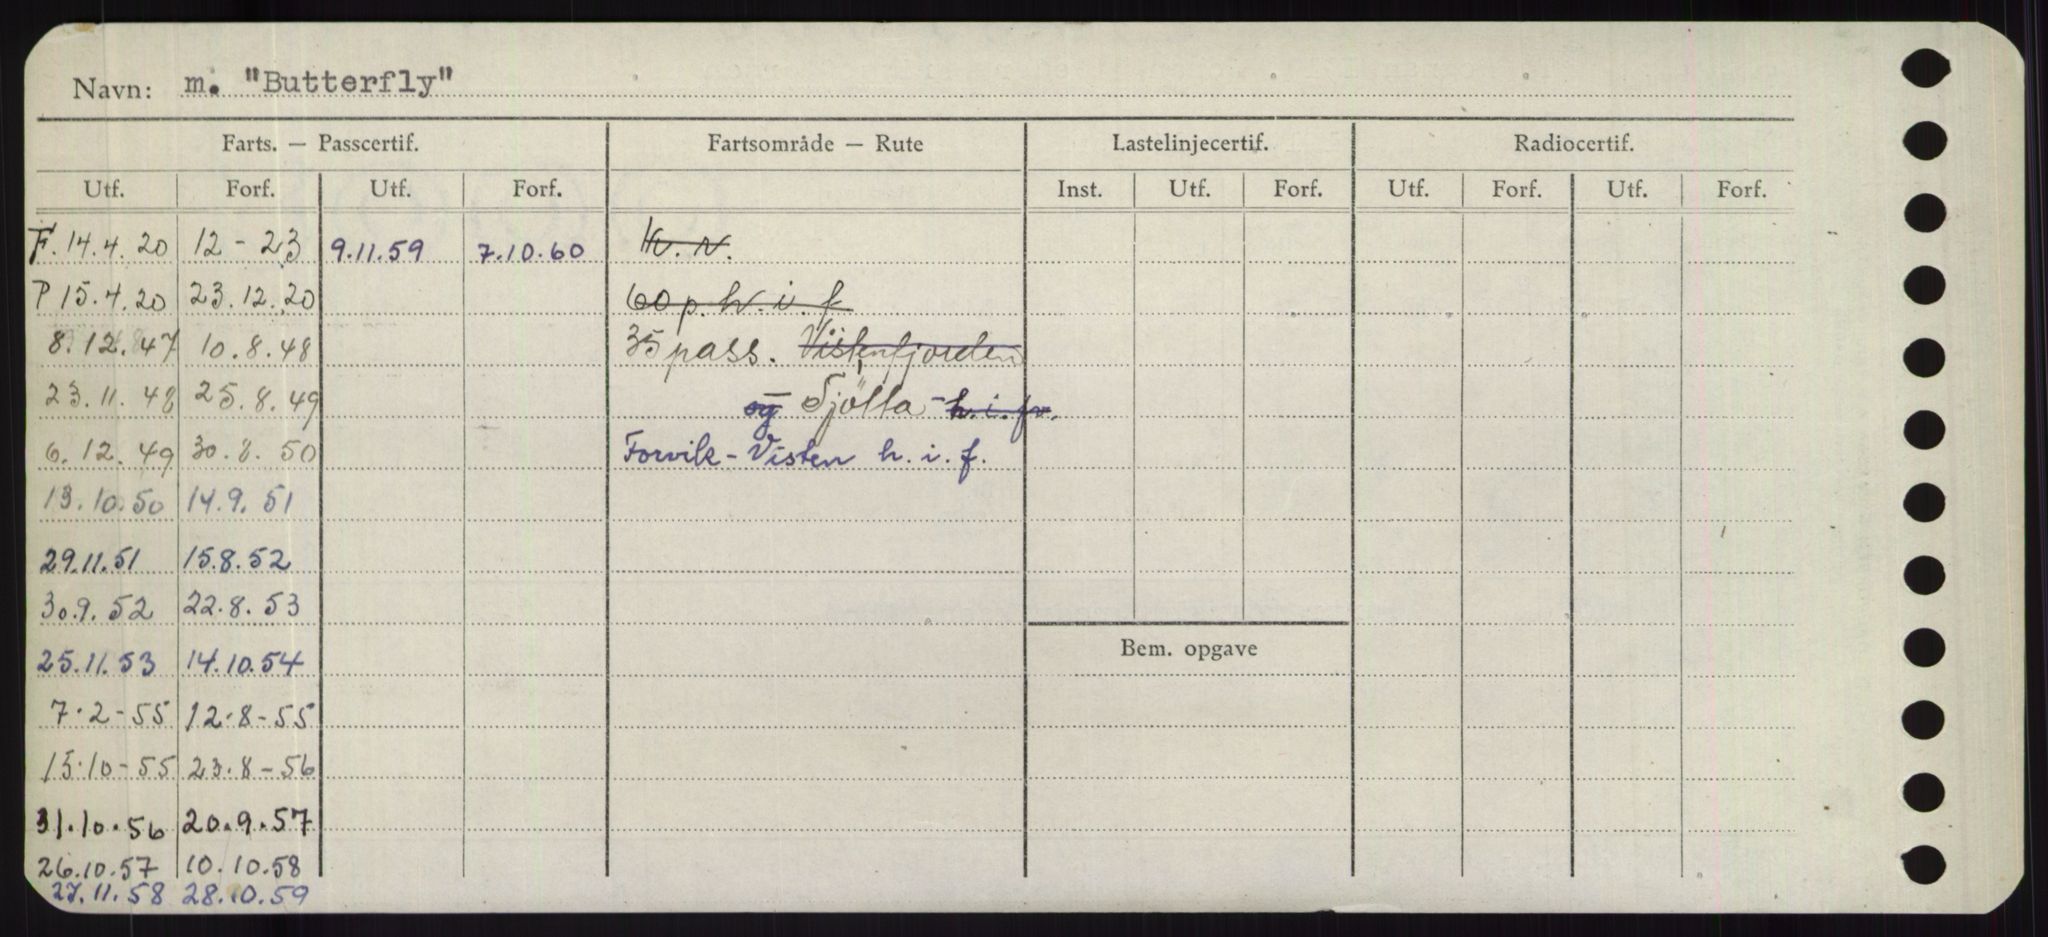 Navn: m. "Butterfly"
Farts. — Passcertif. Fartsområde — Rute Lastelinjecertif. Radiocertif.
Utf. Forf. Utf. Forf. Inst. Utf. Forf. Utf. Forf. Utf. Forf.
F. 14.4.20 12 - 23 9.11.59 7.10.60
P 15.4.20 23.12.20 60 p. h. i. f
8.12.47 10.8.48 35 pass. Vistenfjorden
23.11.48 25.8.49 og Tjötta - h. i. fr.
6.12.49 30.8.50 Forvik - Visten h. i. f.
13.10.50 14.9.51
29.11.51 15.8.52
30.9.52 22.8.53
Bem. opgave
25.11.53 14.10.54
7.2-55 12.8-55
15.10-55 23.8-56
31.10.56 20.9.57
26.10.57 10.10.58
27.11.58 28.10.59